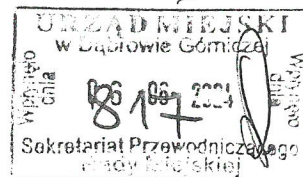 URZĄD MIEJSKI
w Dąbrowie Górniczej
Wpłynęło
dnia
2024
817
Wpłynęło
dnia
Sekretariat Przewodniczącego
Rady Miejskiej